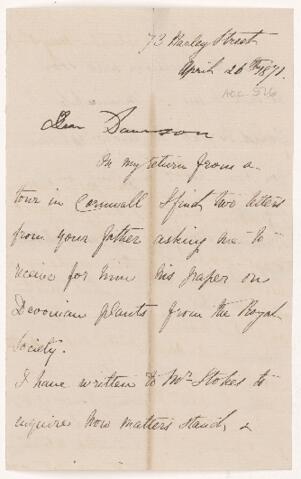 73 Harley Street
April 26th 1871.
ACC 526
Dear Dawson
On my return from a
tour in Cornwall I find two letters
from your father asking me to
receive for him his paper on
Devonian plants from the Royal
Society.
I have written to Mr Stokes to
enquire how matters stand, &